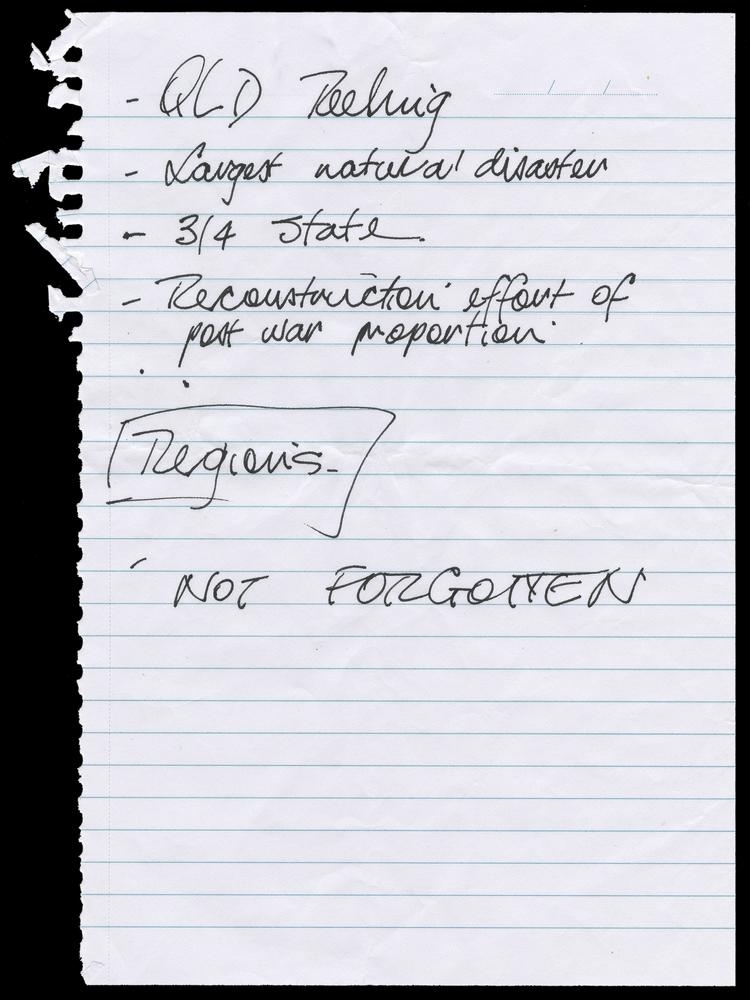 - QLD Reeling
- Largest natural disaster
- 3/4 State.
- Reconstruction effort of
post war proportion
Regions-
- NOT FORGOTTEN